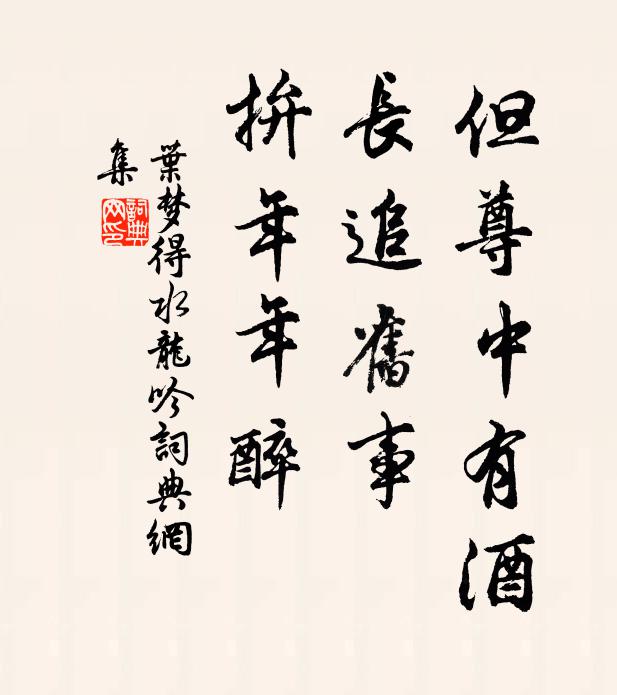 但尊中有酒
長追舊事
拚年年醉
葉梦得水龍吟詞典網
集
詞典
网印